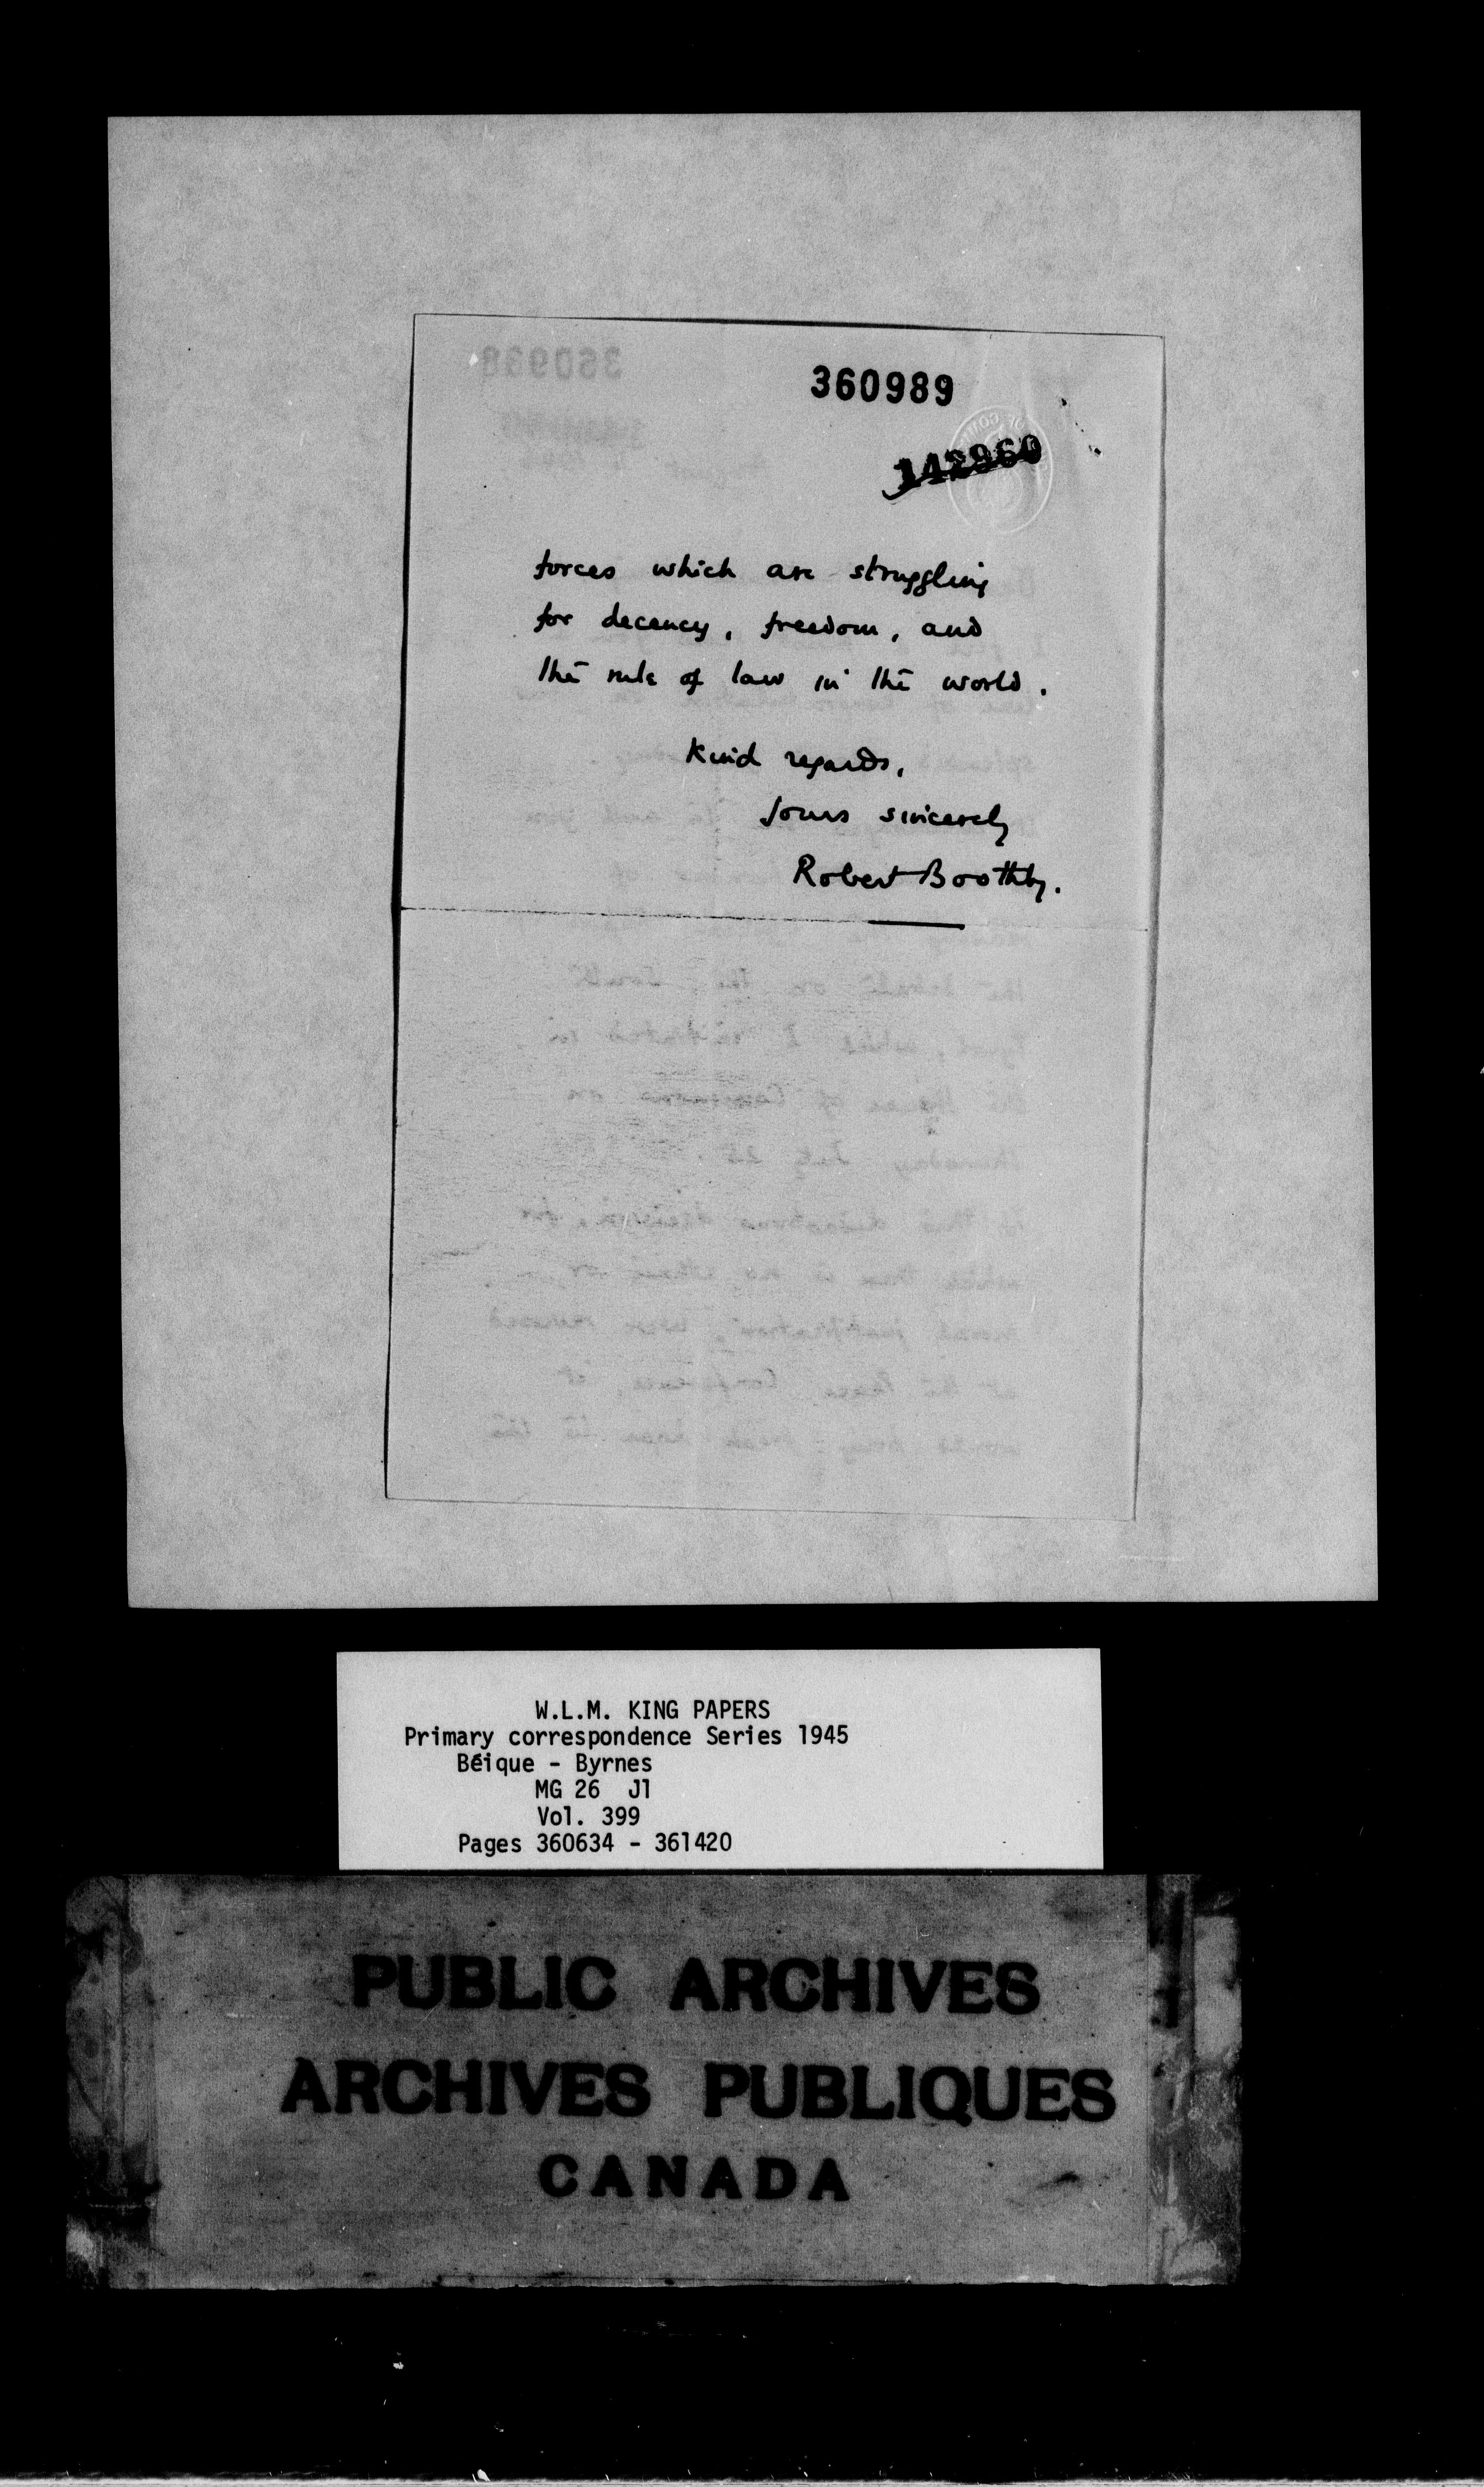 360989
142960
forces which are struggling
for decency, freedom, and
the rule of law in the world.
Kind regards,
Yours sincerely
Robert Boothby.
W.L.M. KING PAPERS
Primary correspondence Series 1945
Béique - Byrnes
MG 26 J1
Vol. 399
Pages 360634 - 361420
PUBLIC ARCHIVES
ARCHIVES PUBLIQUES
CANADA